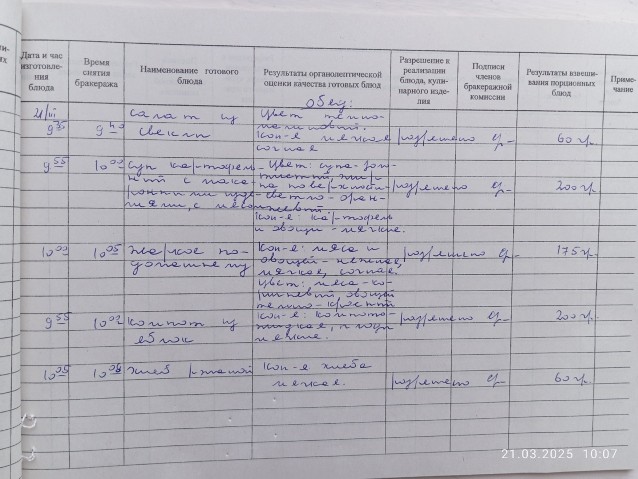 Дата и час изготовления блюда
Время снятия бракеража
Наименование готового блюда
Результаты органолептической оценки качества готовых блюд
Разрешение к реализации блюда, кулинарного изделия
Подписи членов бракеражной комиссии
Результаты взвешивания порционных блюд
Примечание
Обед:
21/III салат из Цвет: темно-
9 35 9 40 свеклы малиновый.
Кон-я мягкая разрешено 60 гр.
сочная
9 55 10 00 суп картофель- Цвет: супа-золо-
ный с мака- тистый, жир
ронными изде- на поверхности разрешено 200 гр.
лиями, с светло-оран-
жевый.
Кон-я: картофель
и овощи - мягкие.
10 00 10 05 жаркое по- Кон-я: мяса и разрешено 175 гр.
домашнему овощей - нежная,
мягкая, сочная
Цвет: мяса-ко-
ричневый, овощей
темно-
9 55 10 02 компот из Кон-я: компота- разрешено 200 гр.
яблок жидкая, плоды
мягкие.
10 05 10 06 хлеб ржаной Кон-я хлеба
мягкая. разрешено 60 гр.
21.03.2025 10:07